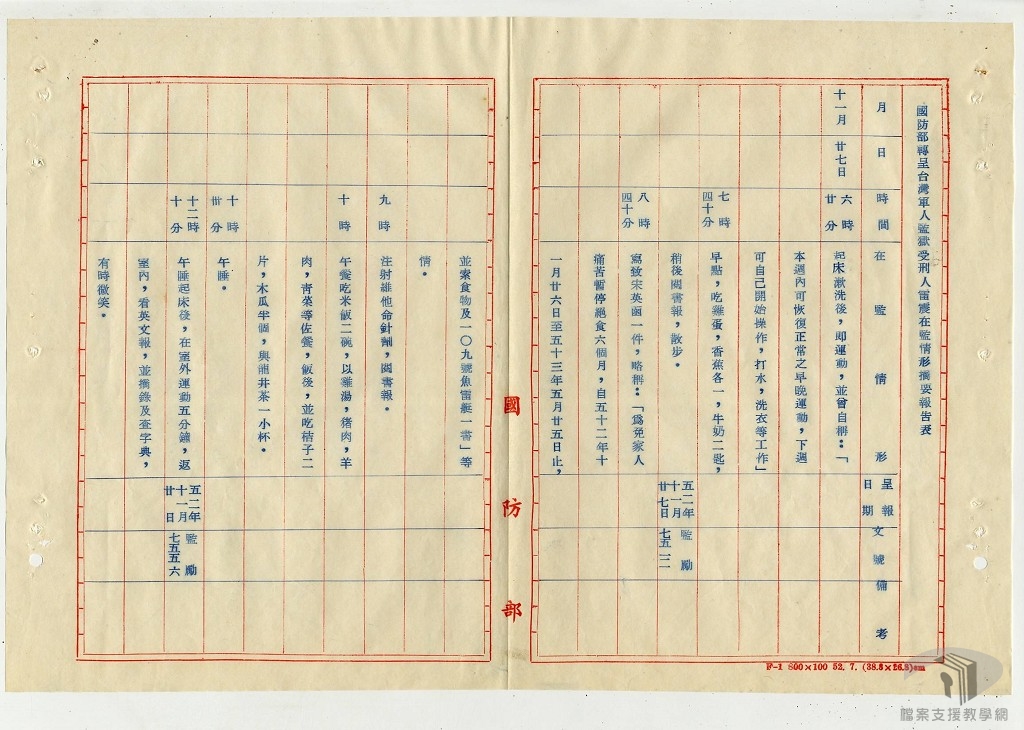 國防部轉呈台灣軍人監獄受刑人雷震在監情形摘要報告表
月 日 時間 在監情形 呈報日期 文號 備考
十一月 廿七日 六時廿分 起床漱洗後，即運動，並曾自稱：「
本週內可恢復正常之早晚運動，下週
可自己開始操作，打水，洗衣等工作」
七時四十分 早點，吃雞蛋，香蕉各一，牛奶二匙，
稍後閱書報，散步。 五二年十一月廿七日 監勵七五一二
八時四十分 寫致宋英函一件，略稱：「為免家人
痛苦暫停絕食六個月，自五十二年十
一月廿六日至五十三年五月廿五日止，
國防部
並索食物及一〇九號魚雷艇一書」等
情。
九時 注射維他命針劑，閱書報。
十時 午餐吃米飯二碗，以雞湯，猪肉，羊
肉，青菜等佐餐，飯後，並吃桔子二
片，木瓜半個，與龍井茶一小杯。
十時廿分 午睡。
十二時十分 午睡起床後，在室外運動五分鐘，返 五二年十一月廿日 監勵七五五六
室內，看英文報，並摘錄及查字典，
有時微笑。
F-1 800×100 52. 7. (38.8×26.8)cm
檔案支援教學網